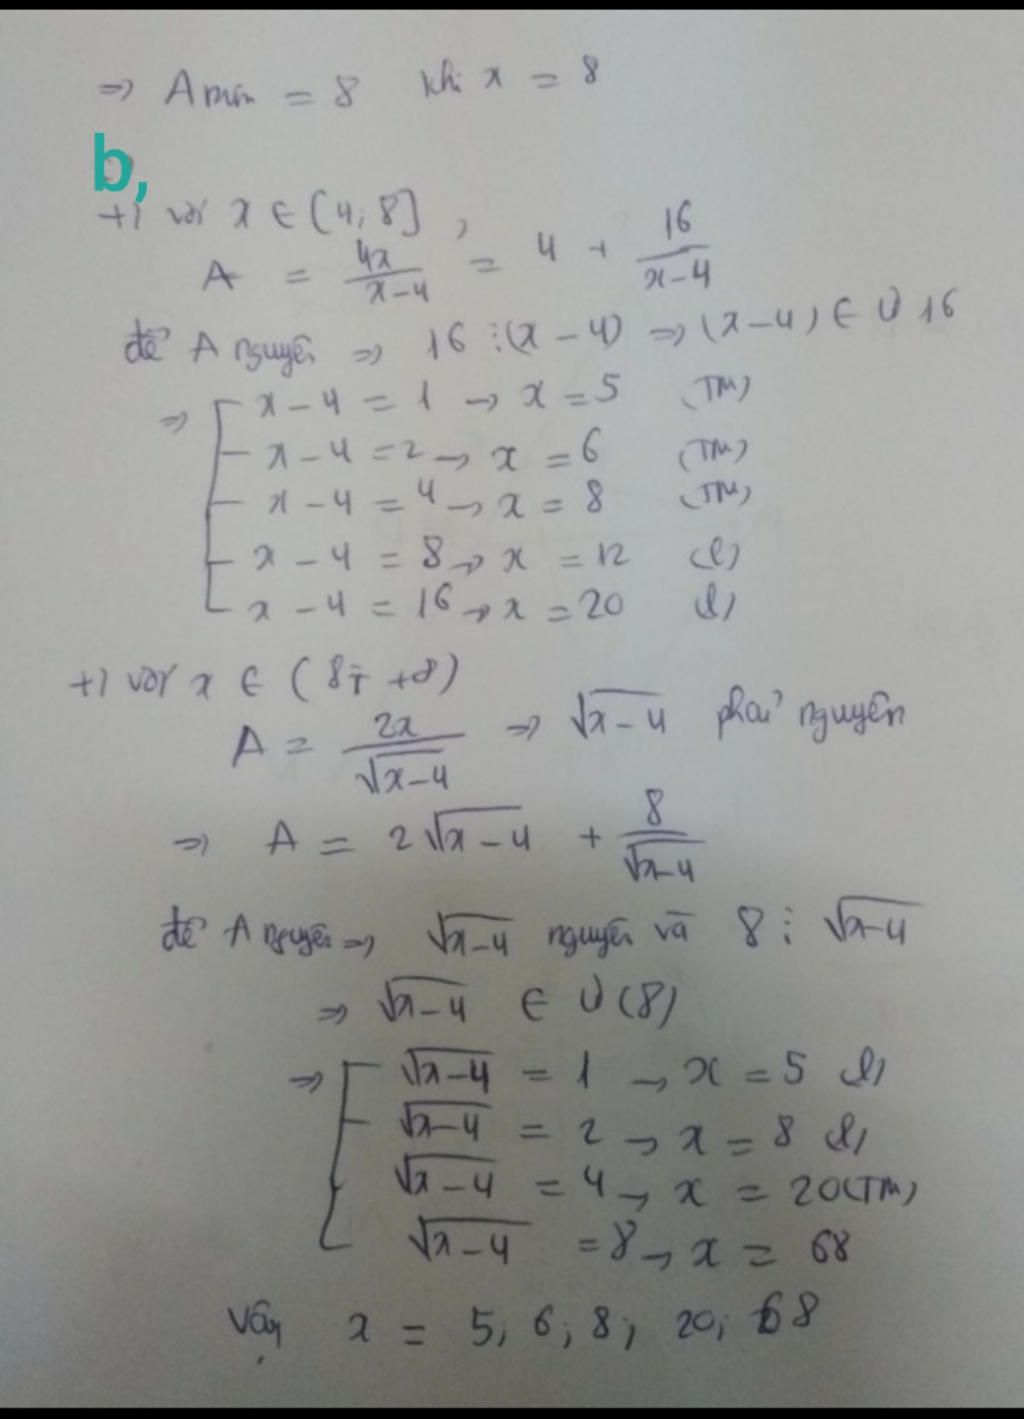 => Amin = 8 khi x = 8
b,
+) với x ∈ (4; 8],
A = 4x/(x-4) = 4 + 16/(x-4)
để A nguyên => 16 ⋮ (x-4) => (x-4) ∈ Ư 16
=> [ x-4 = 1 -> x = 5 (TM)
x-4 = 2 -> x = 6 (TM)
x-4 = 4 -> x = 8 (TM)
x-4 = 8 -> x = 12 (l)
x-4 = 16 -> x = 20 (l)
+) với x ∈ (8; +∞)
A = 2x/√(x-4) => √(x-4) phải nguyên
=> A = 2√(x-4) + 8/√(x-4)
để A nguyên => √(x-4) nguyên và 8 ⋮ √(x-4)
=> √(x-4) ∈ Ư(8)
=> [ √(x-4) = 1 -> x = 5 (l)
√(x-4) = 2 -> x = 8 (l)
√(x-4) = 4 -> x = 20 (TM)
√(x-4) = 8 -> x = 68
Vậy x = 5; 6; 8; 20; 68